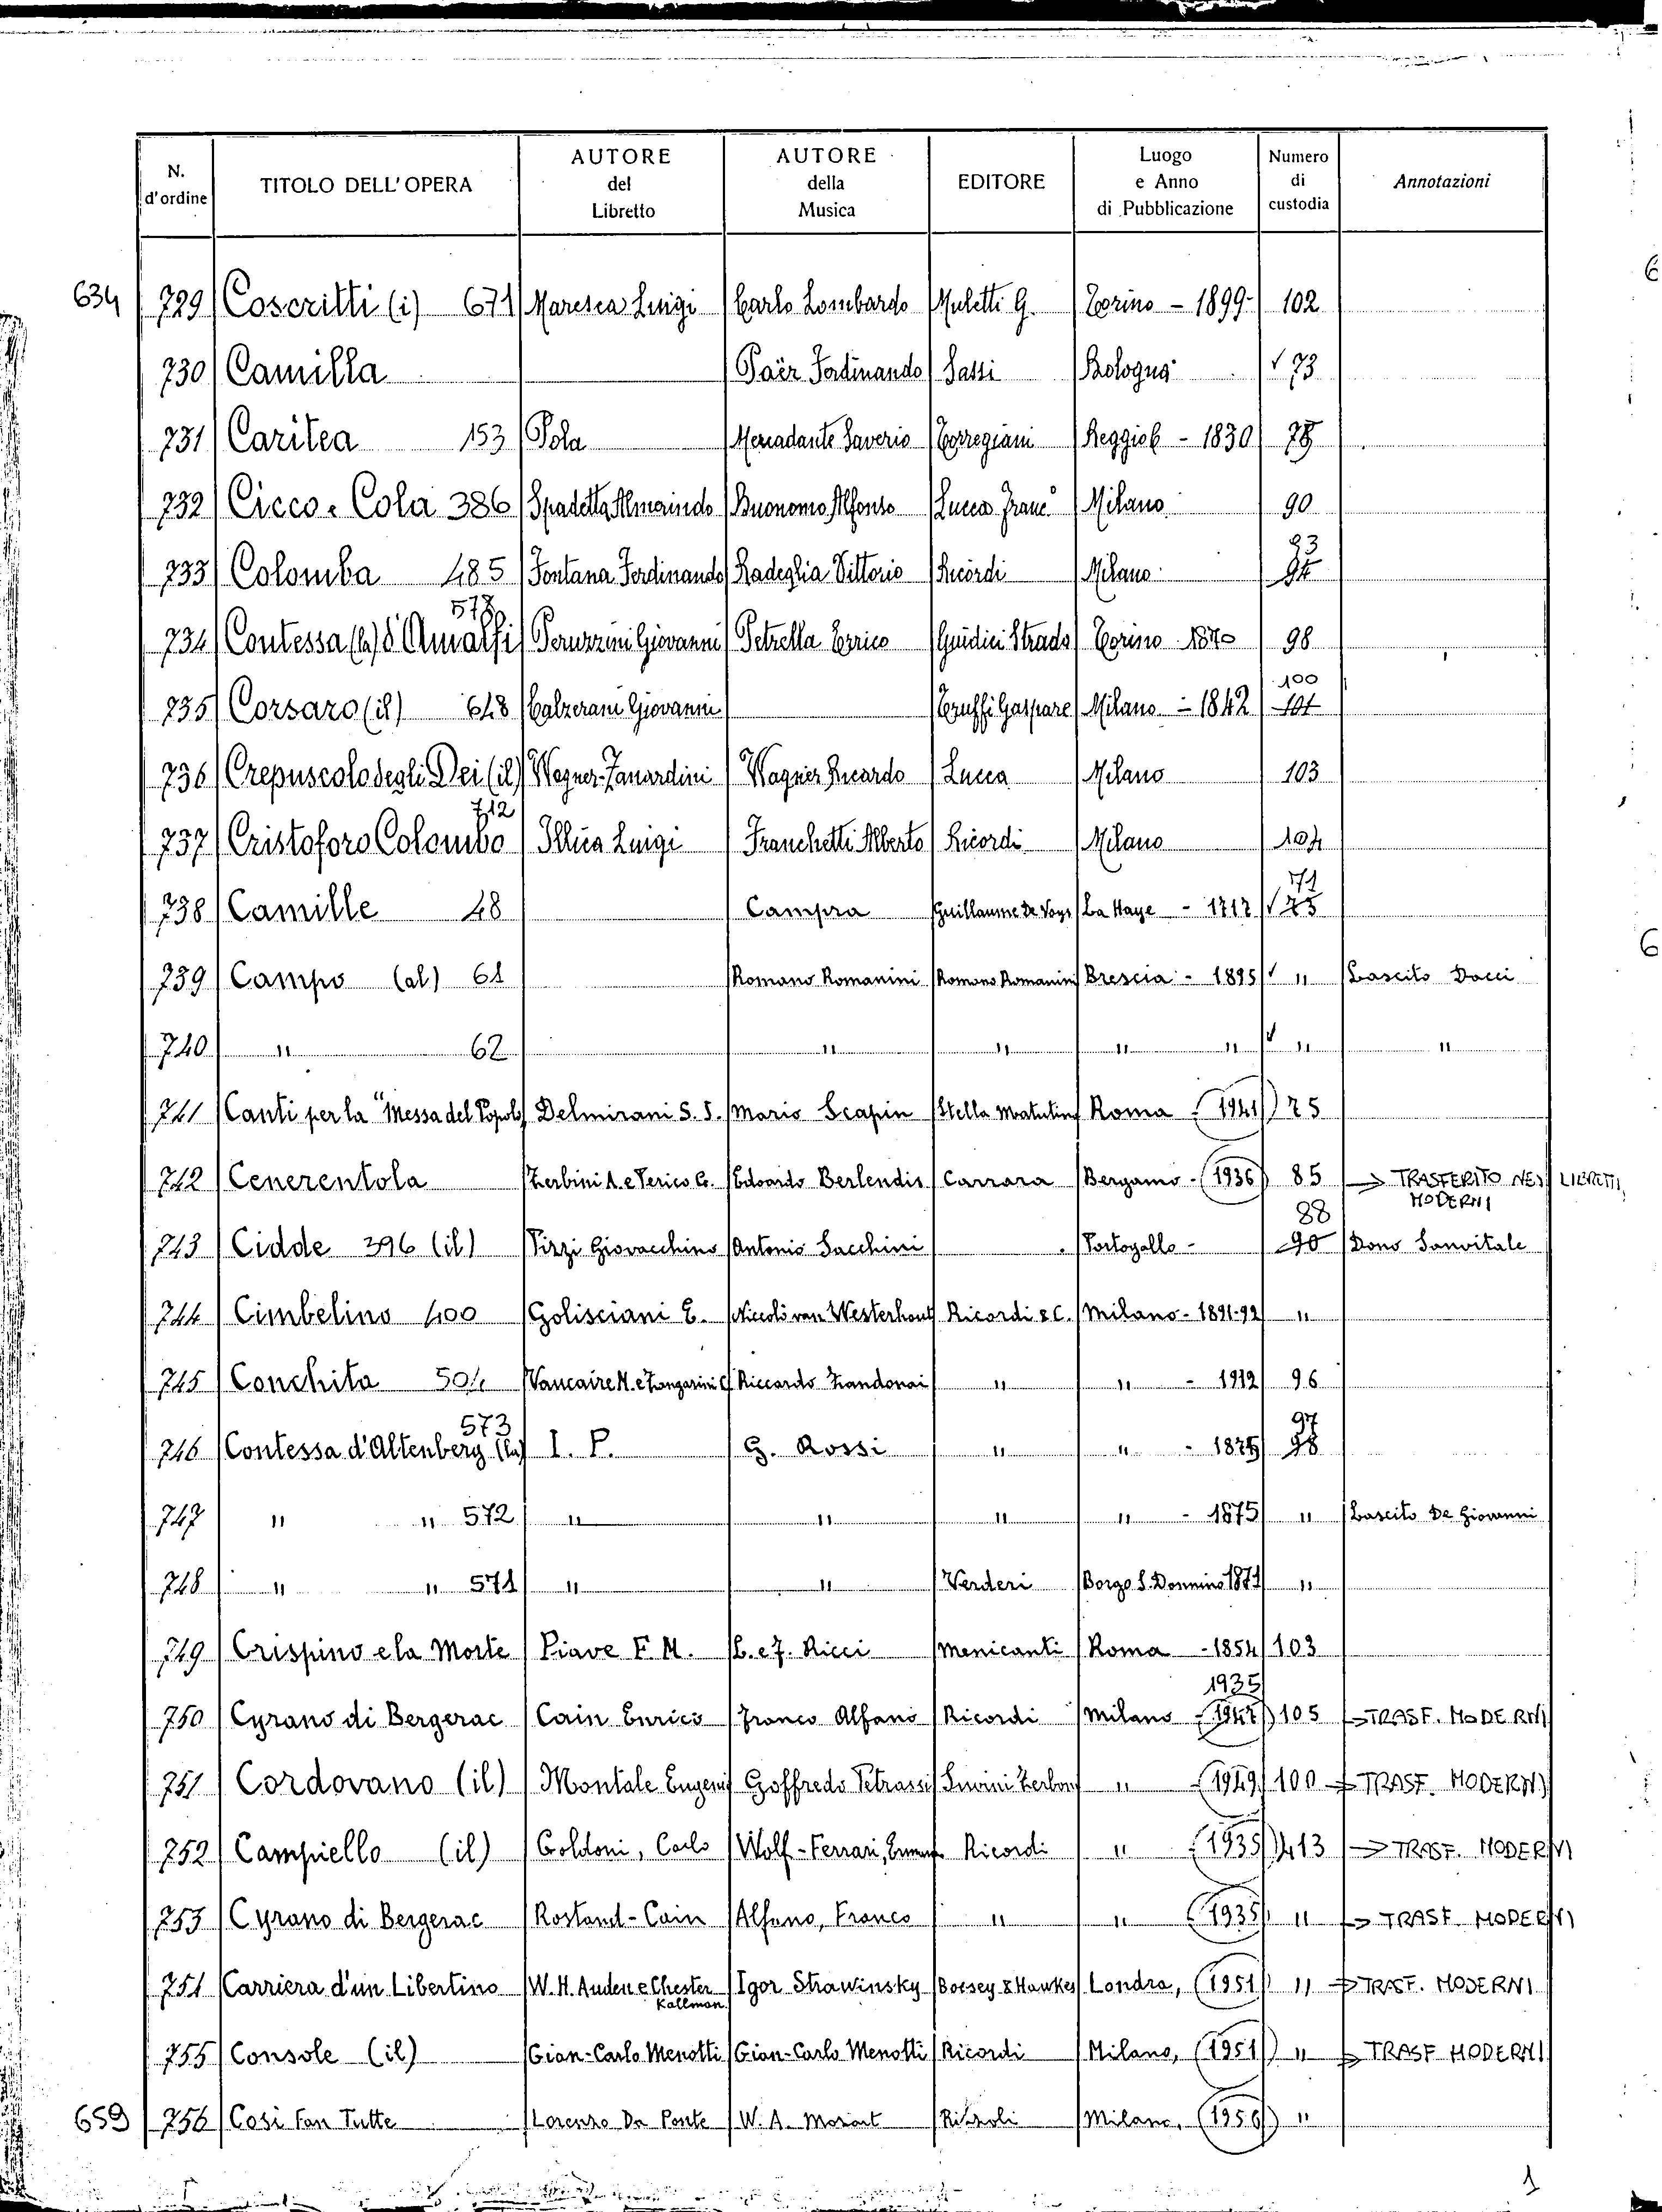 N. d'ordine TITOLO DELL'OPERA AUTORE del Libretto AUTORE della Musica EDITORE Luogo e Anno di Pubblicazione Numero di custodia Annotazioni
634 729 Coscritti (i) 671 Maresca Luigi Carlo Lombardo Muletti G. Torino - 1899 - 102
730 Camilla Paër Ferdinando Sassi Bologna 73
731 Caritea 153 Pola Mercadante Saverio Torregiani Reggio E - 1830 78
732 Cicco e Cola 386 Spadetta Almerindo Buonomo Alfonso Lucca Franc° Milano 90
733 Colomba 485 Fontana Ferdinando Radeglia Vittorio Ricordi Milano 93
734 Contessa (la) d'Amalfi 578 Peruzzini Giovanni Petrella Errico Giudici Strada Torino 1870 98
735 Corsaro (il) 648 Calzerani Giovanni Truffi Gaspare Milano - 1842 100 101
736 Crepuscolo degli Dei (il) Wagner-Zanardini Wagner Riccardo Lucca Milano 103
737 Cristoforo Colombo 712 Illica Luigi Franchetti Alberto Ricordi Milano 104
738 Camille 48 Campra Guillaume de Voys La Haye - 1717 71 75
739 Campo (al) 61 Romano Romanini Romano Romanini Brescia - 1895 " Lascito Dacci
740 " 62 " " " " " "
741 Canti per la "Messa del Popolo Delmirani S. S. Mario Scapin Stella Matutina Roma (1941) 75
742 Cenerentola Zerbini A. e Perico G. Edoardo Berlendis Carrara Bergamo - (1936) 85 → TRASFERITO NEI LIBRETTI MODERNI
743 Cidde 396 (il) Pizzi Giovacchino Antonio Sacchini Portogallo - 88 90 Dono Sanvitale
744 Cimbelino 400 Golisciani E. Niccolò van Westerhout Ricordi & C. Milano - 1891-92 "
745 Conchita 504 Vaucaire M. e Zangarini C Riccardo Zandonai " " - 1912 96
746 Contessa d'Altenberg (la) 573 I. P. G. Rossi " " - 1875 97 98
747 " " 572 " " " " - 1875 " Lascito De Giovanni
748 " " 571 " " Verderi Borgo S. Donnino 1871 "
749 Crispino e la Morte Piave F. M. L. e F. Ricci Menicanti Roma - 1854 103
750 Cyrano di Bergerac Cain Enrico Franco Alfano Ricordi Milano - 1935 105 → TRASF. MODERNI
751 Cordovano (il) Montale Eugenio Goffredo Petrassi Suvini Zerboni " (1949) 100 → TRASF. MODERNI
752 Campiello (il) Goldoni, Carlo Wolf-Ferrari, Erman Ricordi " (1935) 413 → TRASF. MODERNI
753 Cyrano di Bergerac Rostand-Cain Alfano, Franco " " (1935) " → TRASF. MODERNI
754 Carriera d'un Libertino W. H. Auden e Chester Kallman Igor Strawinsky Boosey & Hawkes Londra, (1951) " → TRASF. MODERNI
755 Console (il) Gian-Carlo Menotti Gian-Carlo Menotti Ricordi Milano, (1951) " → TRASF MODERNI
659 756 Così fan Tutte Lorenzo Da Ponte W. A. Mozart Rizzoli Milano, (1956) "
1